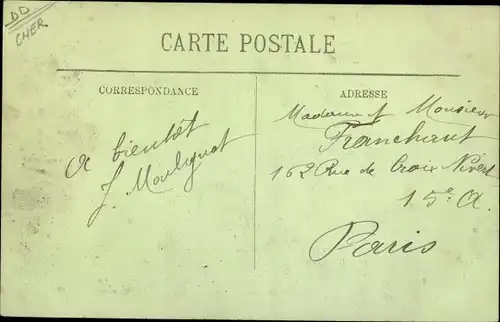 DD
CHER
CARTE POSTALE
CORRESPONDANCE
a bientôt
J. Moulignot
ADRESSE
Madame et Monsieur
Franchaut
162 Rue de Croix Nivert
15e A.
Paris